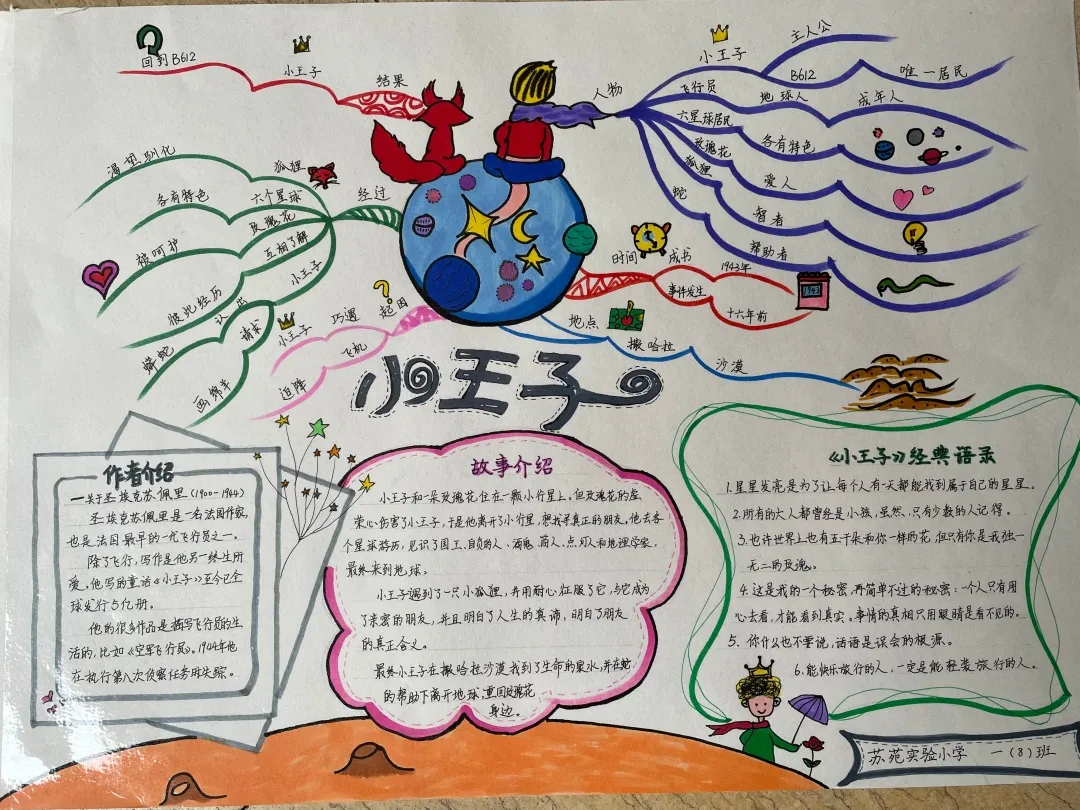 回到B612
小王子
结果
人物
小王子
主人公
B612
唯一居民
飞行员
地球人
成年人
六星球居民
各有特色
玫瑰花
爱人
狐狸
智者
蛇
帮助者
渴望驯化
狐狸
经过
各有特色
六个星球
玫瑰花
被呵护
互相了解
小王子
彼此经历
认出
蟒蛇
请求
画绵羊
时间
成书
1943年
1943
事件发生
十六年前
地点
撒哈拉
沙漠
起因
巧遇
小王子
飞机
迫降
小王子
作者介绍
一关于圣埃克苏佩里(1900-1944)
圣埃克苏佩里是一名法国作家,
也是法国最早的一代飞行员之一。
除了飞行,写作是他另一终生所
爱。他写的童话《小王子》至今已全
球发行5亿册。
他的很多作品是描写飞行员的生
活的,比如《空军飞行员》。1944年他
在执行第八次侦察任务时失踪。
故事介绍
小王子和一朵玫瑰花住在一颗小行星上。但玫瑰花的虚
荣心伤害了小王子,于是他离开了小行星,想找寻真正的朋友。他去各
个星球游历,见识了国王、自负的人、酒鬼、商人、点灯人和地理学家,
最终来到地球。
小王子遇到了一只小狐狸,并用耐心征服了它,与它成为
了亲密的朋友,并且明白了人生的真谛,明白了朋友
的真正含义。
最终小王子在撒哈拉沙漠找到了生命的泉水,并在蛇
的帮助下离开地球,重回玫瑰花
身边。
《小王子》经典语录
1.星星发亮是为了让每个人有一天都能找到属于自己的星星。
2.所有的大人都曾经是小孩,虽然,只有少数的人记得。
3.也许世界上也有五千朵和你一样的花,但只有你是我独一
无二的玫瑰。
4.这是我的一个秘密,再简单不过的秘密:一个人只有用
心去看,才能看到真实。事情的真相只用眼睛是看不见的。
5、你什么也不要说,话语是误会的根源。
6.能快乐旅行的人,一定是能轻装旅行的人。
苏苑实验小学 一(8)班